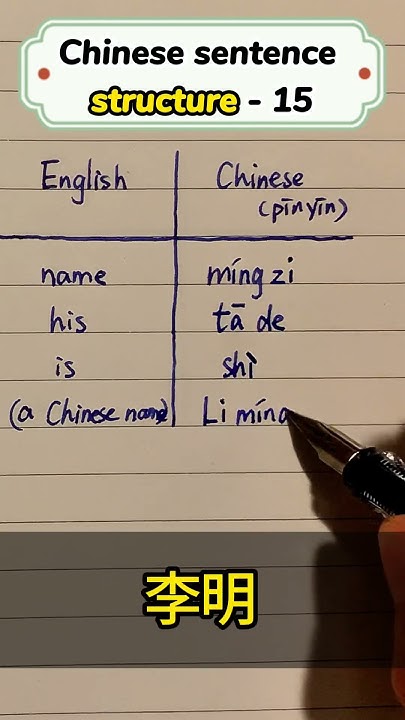 Chinese sentence
structure - 15
English Chinese
(pīnyīn)
name míng zi
his tā de
is shì
(a Chinese name) Li mín
李明